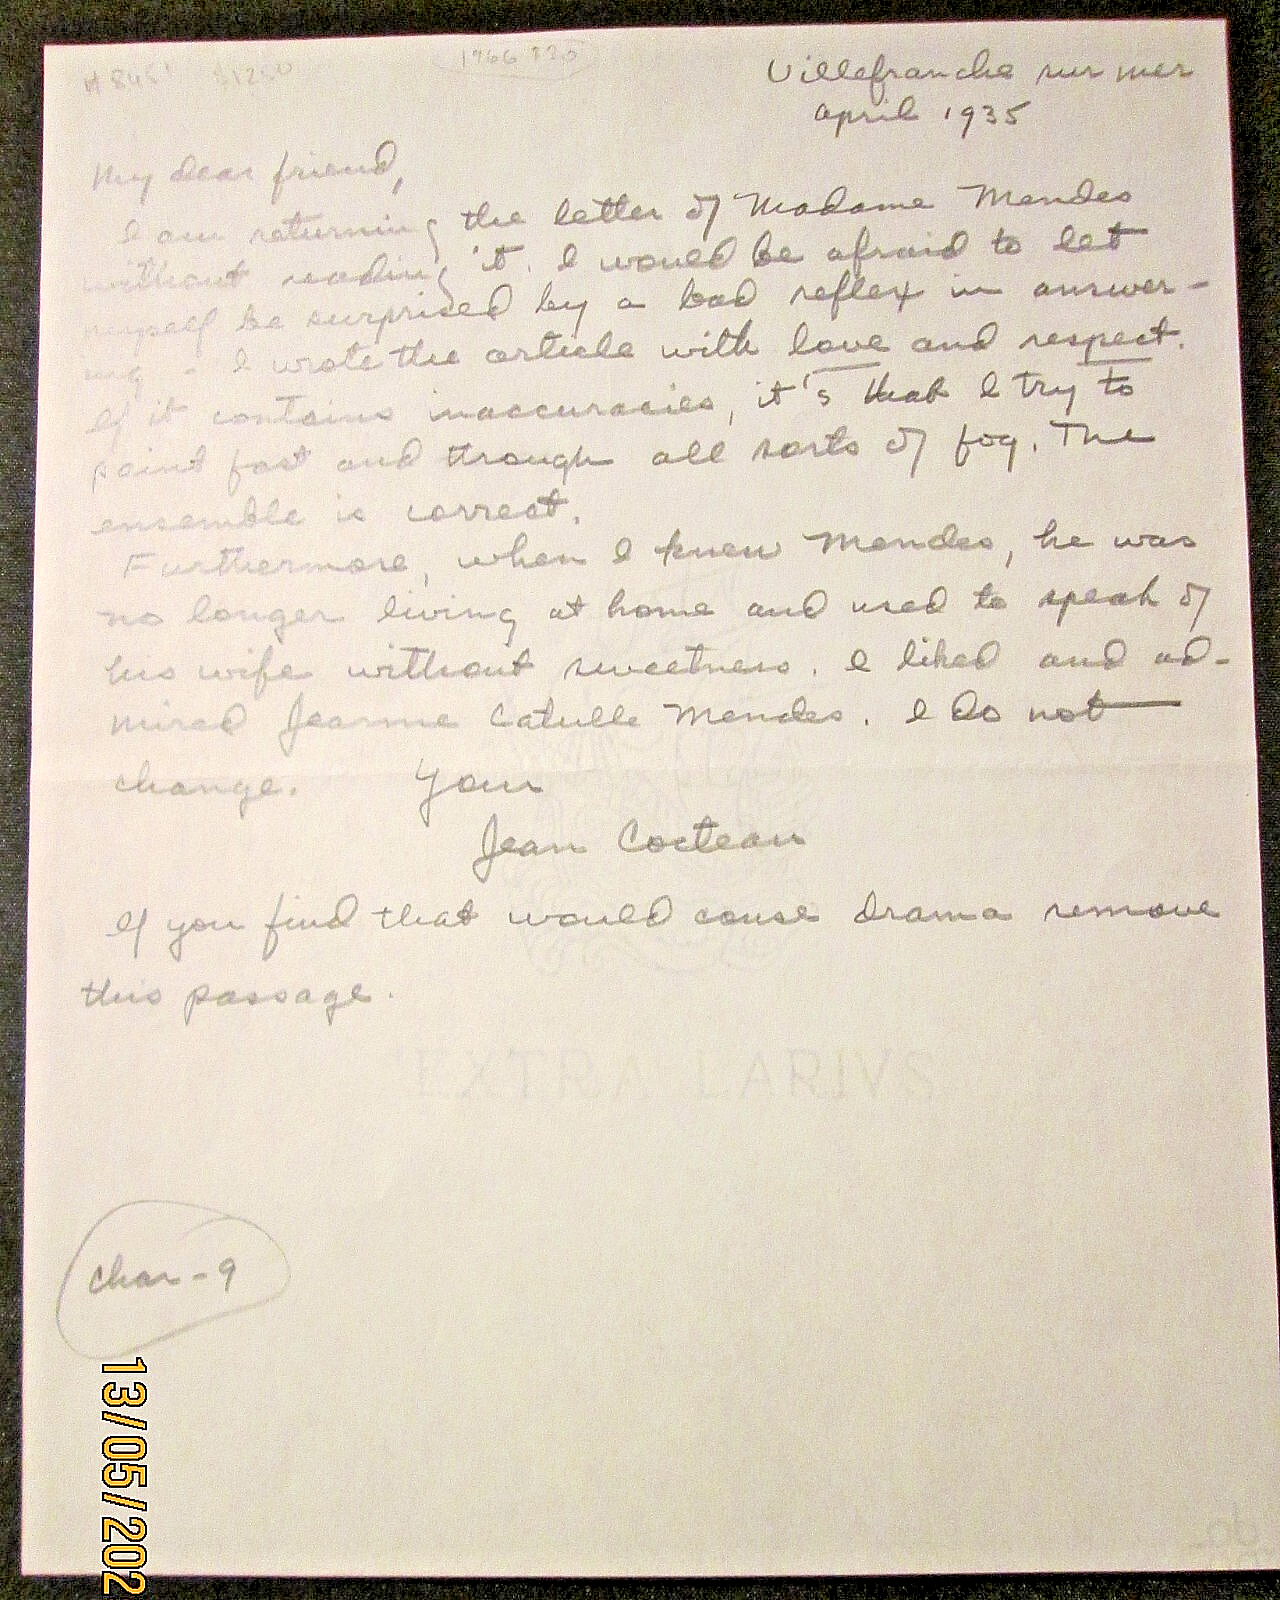 # 8451 $1250 1966 320
Villefranche sur mer
April 1935
My dear friend,
I am returning the letter of Madame Mendes
without reading it. I would be afraid to let
myself be surprised by a bad reflex in answer-
ing - I wrote the article with love and respect.
If it contains inaccuracies, it's that I try to
paint fast and through all sorts of fog. The
ensemble is correct.
Furthermore, when I knew Mendes, he was
no longer living at home and used to speak of
his wife without sweetness. I liked and ad-
mired Jeanne Catulle Mendes. I do not
change. Your
Jean Cocteau
If you find that would cause drama remove
this passage.
EXTRA LARIVS
Char - 9
13/05/202